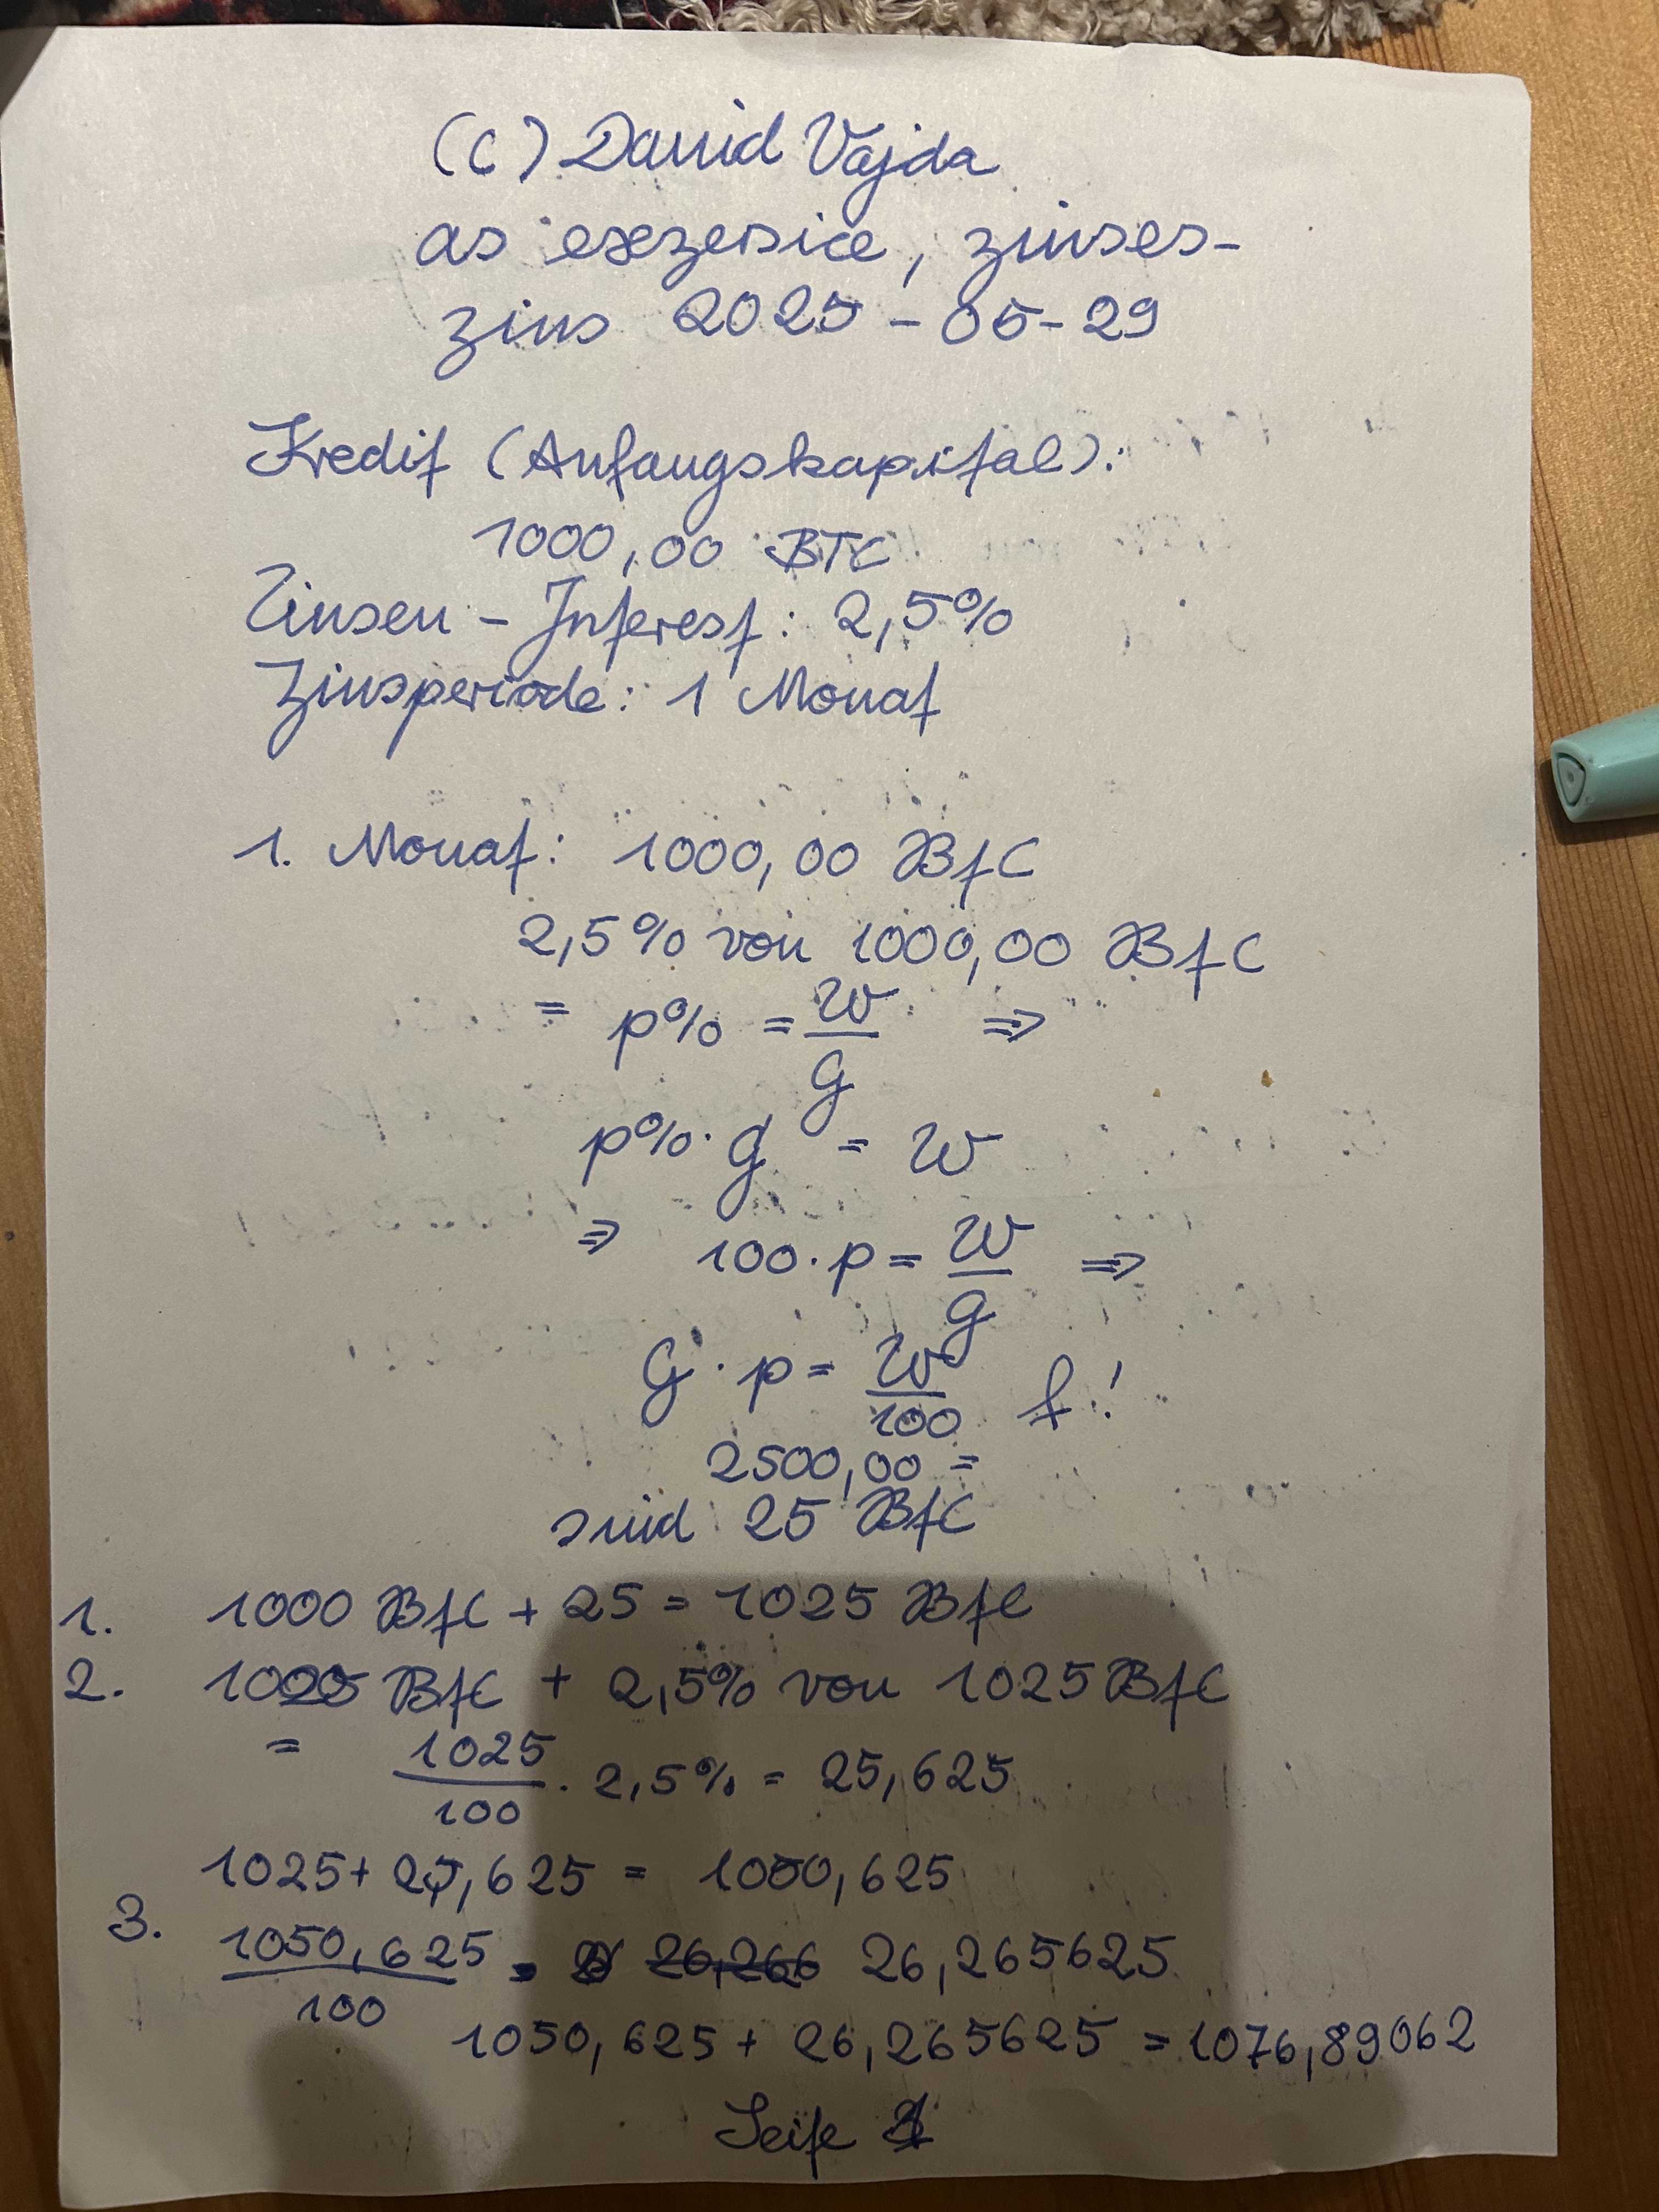 (C) David Vajda
as exezersice, zinses-
zins 2025-05-29
Kredit (Anfangskapital):
1000,00 BTC
Zinsen - Interest: 2,5%
Zinsperiode: 1 Monat
1. Monat: 1000,00 BtC
2,5% von 1000,00 BtC
= p% = W/G ⇒
p% · G = W
⇒ 100 · p = W/G ⇒
G · p = W/100 f!
2500,00 =
sind 25 BtC
1. 1000 BtC + 25 = 1025 BtC
2. 1025 BtC + 2,5% von 1025 BtC
= 1025/100 · 2,5% = 25,625
1025 + 25,625 = 1050,625
3. 1050,625/100 = 26,266 26,265625
1050,625 + 26,265625 = 1076,89062
Seite 1